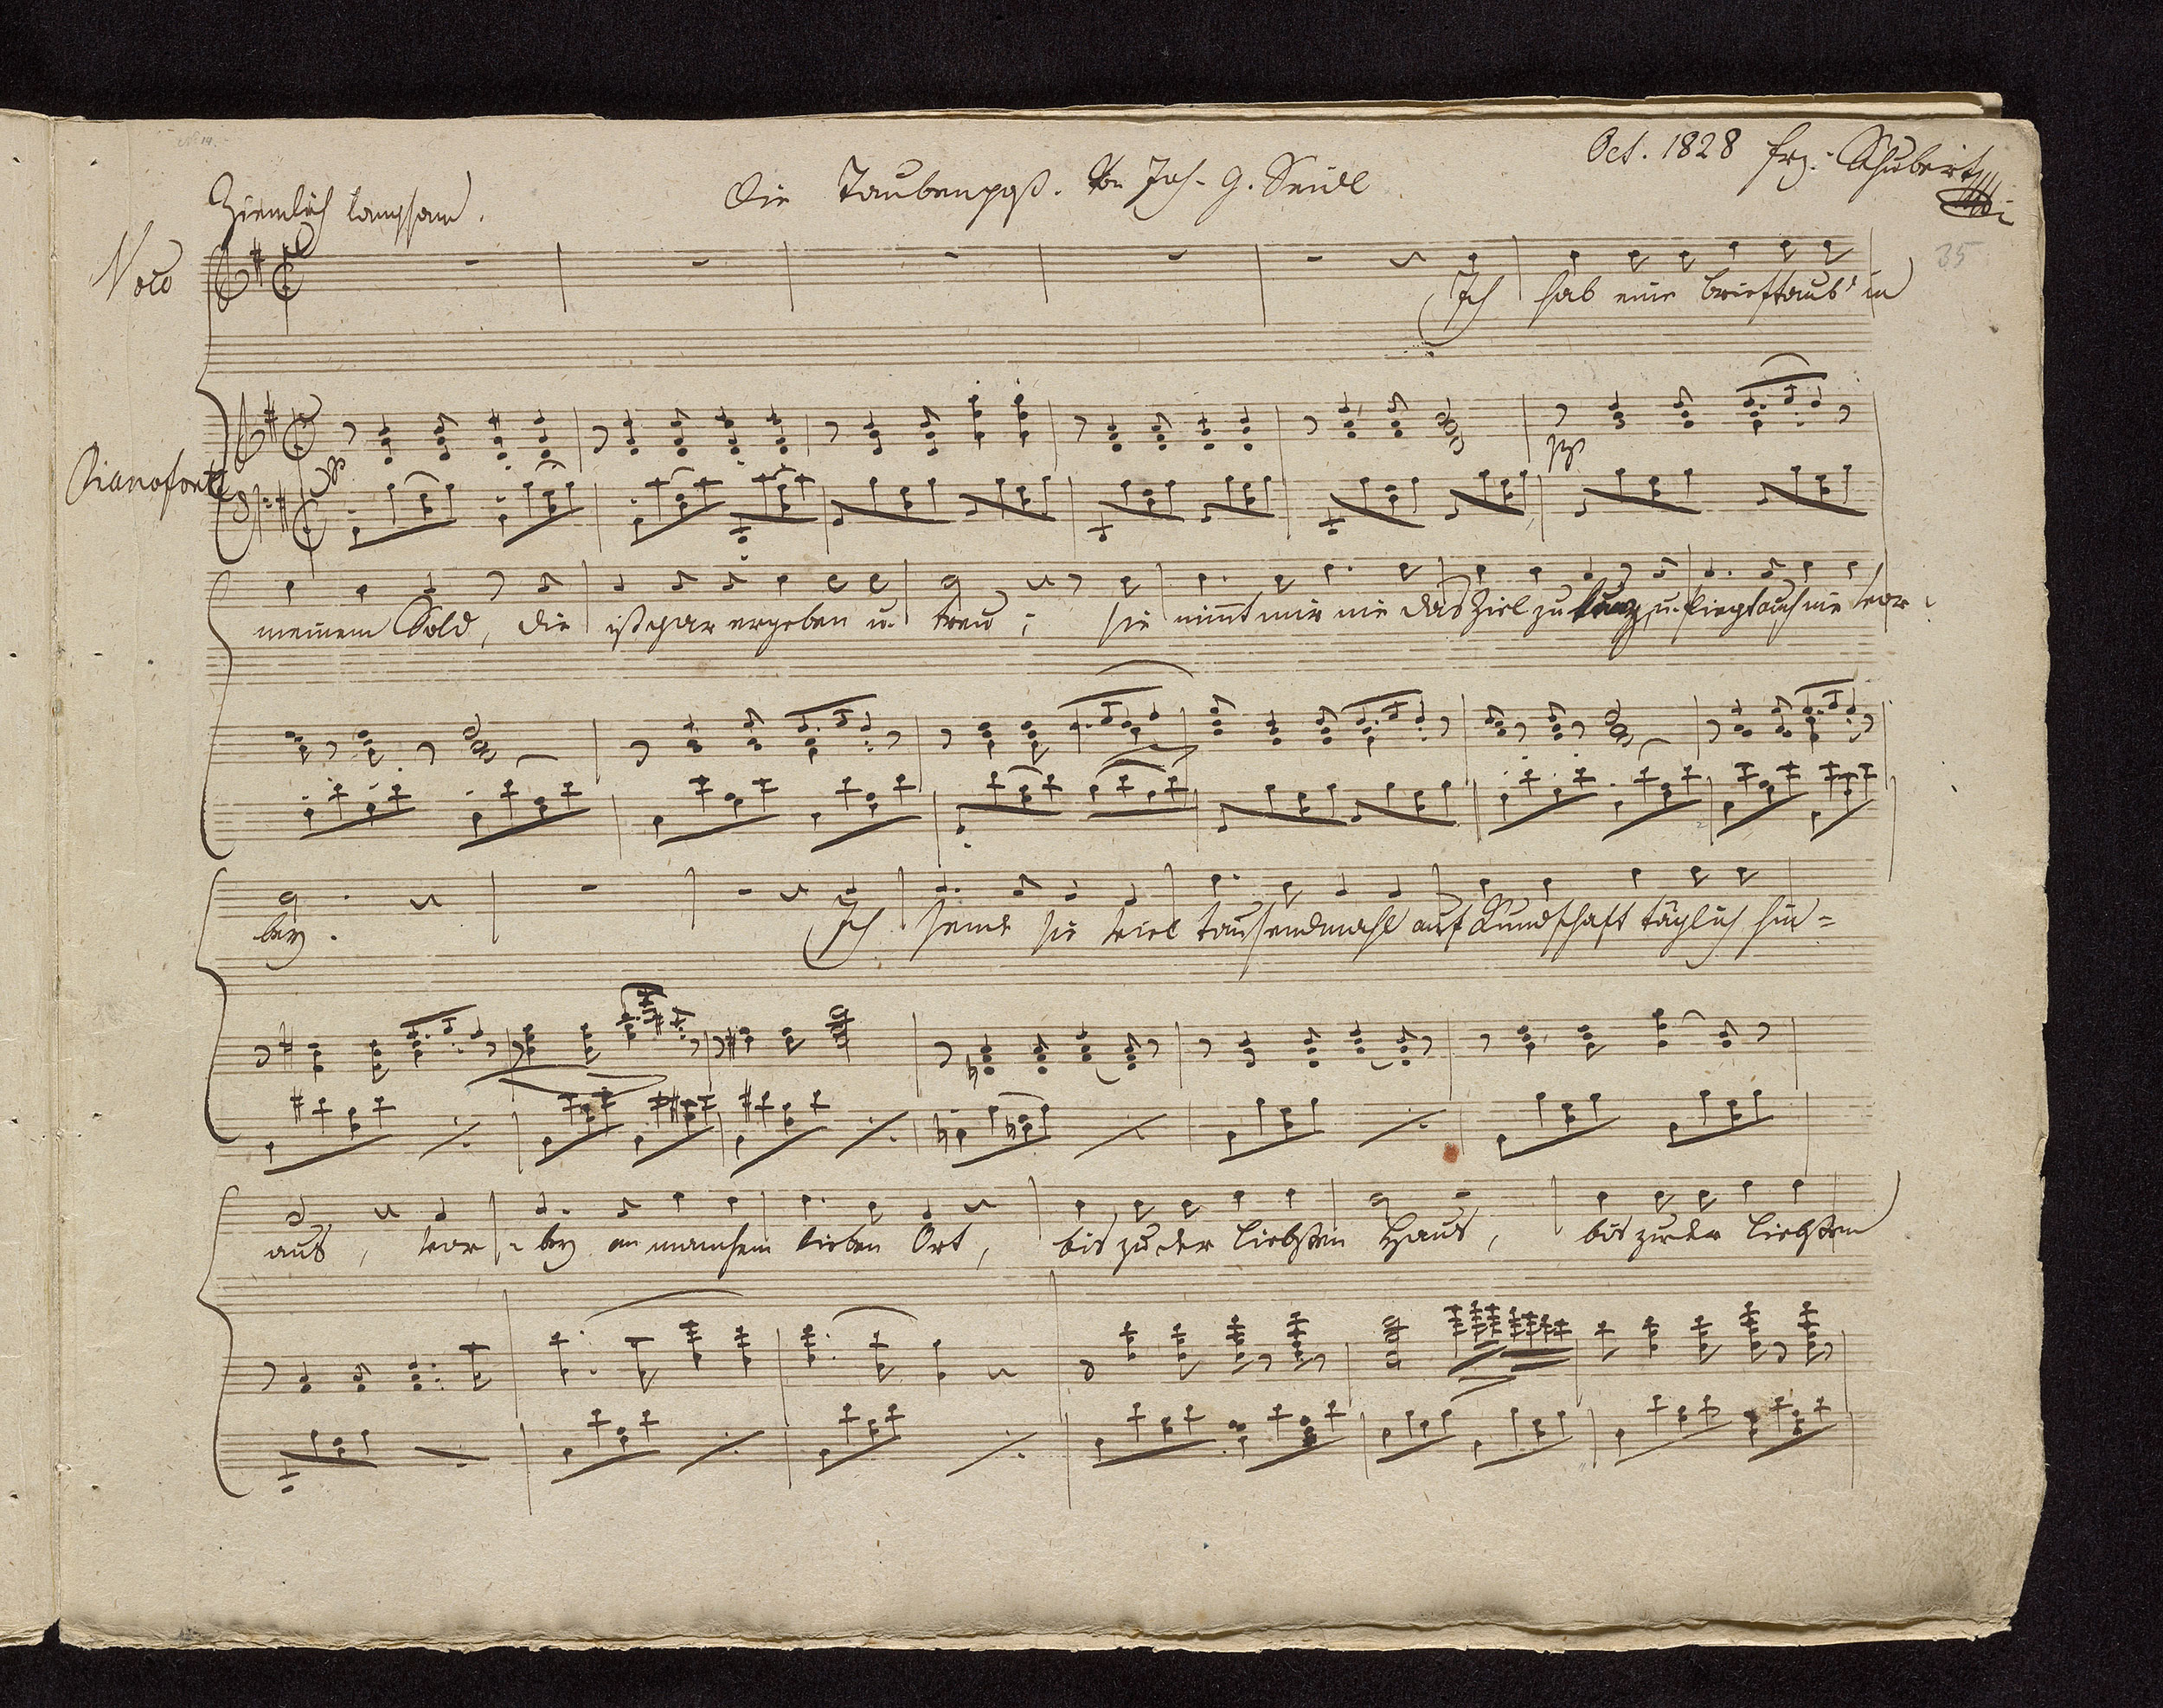 Oct. 1828 frz. Schubert
Die Taubenpost. Von Joh. G. Seidl
Ziemlich langsam.
35
Voce
Ich hab eine Brieftaub' in
pp
Pianoforte
meinem Sold, die ist gar ergeben u. treu; sie nimt mir nie das Ziel zu kurz, u. fliegt auch nie vor-
bey. Ich sende sie viel tausendmahl auf Kundschaft täglich hin=
aus, vor-bey an manchem lieben Ort, bis zu der Liebsten Haus, bis zu der Liebsten